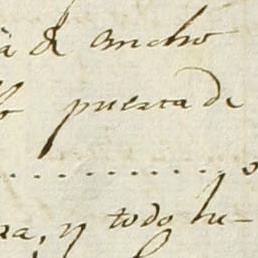 de ancho
puerta de
y todo lu-